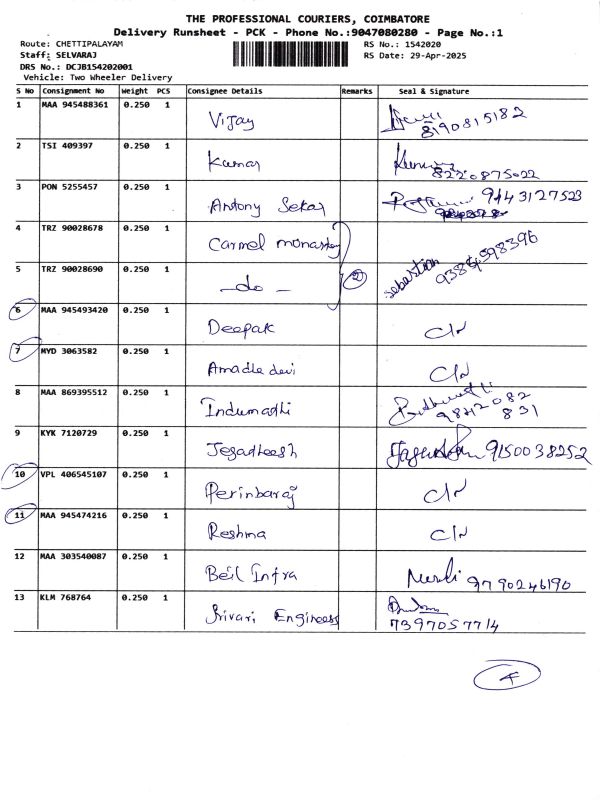 THE PROFESSIONAL COURIERS, COIMBATORE
Delivery Runsheet - PCK - Phone No.:9047080280 - Page No.:1
Route: CHETTIPALAYAM
RS No.: 1542020
Staff: SELVARAJ
RS Date: 29-Apr-2025
DRS No.: DCJB154202001
Vehicle: Two Wheeler Delivery
S No Consignment No Weight PCS Consignee Details Remarks Seal & Signature
1 MAA 945488361 0.250 1 Vijay 8190815182
2 TSI 409397 0.250 1 Kumar 8220875022
3 PON 5255457 0.250 1 Antony Sekar 9143127523
4 TRZ 90028678 0.250 1 Carmel monastry
5 TRZ 90028690 0.250 1 -do- 2 sebastian
6 MAA 945493420 0.250 1 Deepak C/N
7 MYD 3063582 0.250 1 Amadla devi C/N
8 MAA 869395512 0.250 1 Indumathi 9842082
831
9 KYK 7120729 0.250 1 Jegadheesh 9150038252
10 VPL 406545107 0.250 1 Perinbaraj C/N
11 MAA 945474216 0.250 1 Reshma C/N
12 MAA 303540087 0.250 1 Beil Infra 9790246190
13 KLM 768764 0.250 1 Srivari Engineers
7397057714
4